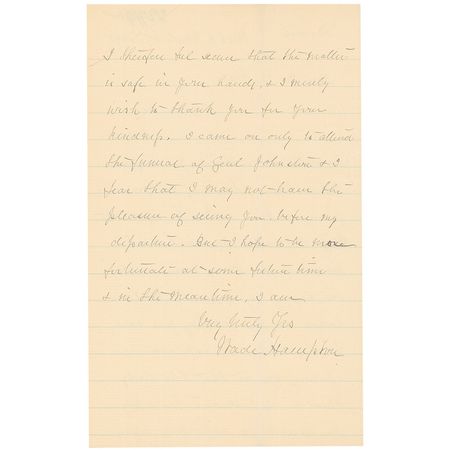 I therefore feel secure that the matter
is safe in your hands, & I merely
wish to thank you for your
kindness. I came on only to attend
the funeral of Genl Johnston & I
fear that I may not have the
pleasure of seeing you, before my
departure. But I hope to be more
fortunate at some future time
& in the meantime, I am
Very truly Yrs
Wade Hampton